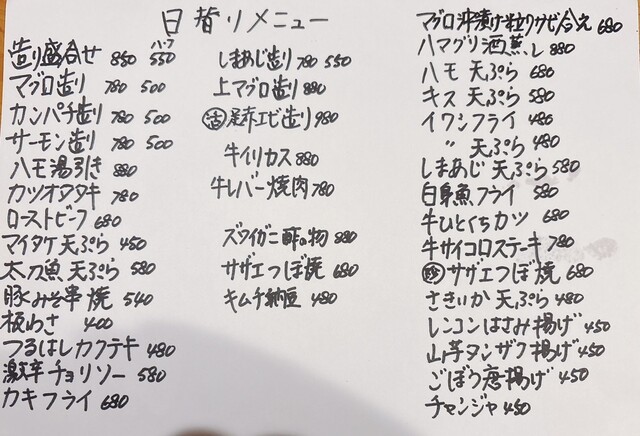 日替りメニュー
ハーフ
造り盛合せ 850 550
マグロ造り 780 500
カンパチ造り 780 500
サーモン造り 780 500
ハモ湯引き 880
カツオタタキ 780
ローストビーフ 680
マイタケ天ぷら 450
太刀魚天ぷら 580
豚みそ串焼 540
板わさ 400
つるはしカクテキ 480
激辛チョリソー 580
カキフライ 680
しまあじ造り 780 550
上マグロ造り 880
活 足赤エビ造り 980
牛イリカス 880
牛レバー焼肉 780
ズワイガニ酢の物 880
サザエつぼ焼 680
キムチ納豆 480
マグロ沖漬け粒ワサビ合え 680
ハマグリ酒蒸し 880
ハモ 天ぷら 680
キス 天ぷら 580
イワシフライ 480
〃 天ぷら 480
しまあじ 天ぷら 580
白身魚フライ 580
牛ひとくちカツ 680
牛サイコロステーキ 780
サザエつぼ焼 680
さきいか天ぷら 480
レンコンはさみ揚げ 450
山芋タンザク揚げ 450
ごぼう唐揚げ 450
チャンジャ 450